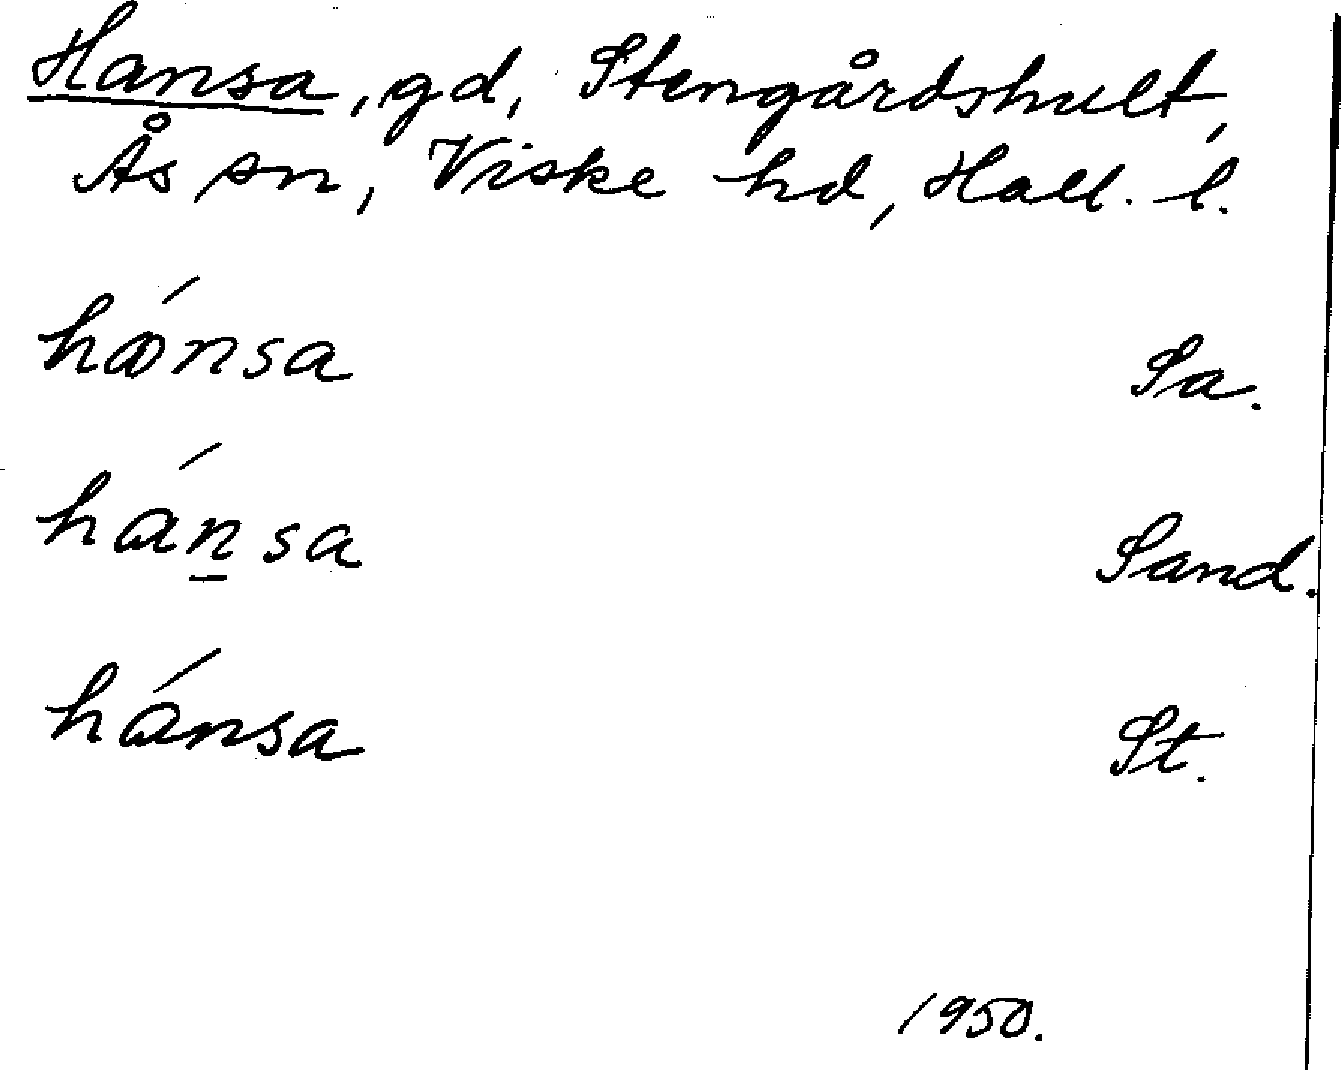 Hansa, gd, Stengårdshult,
Ås sn, Viske hd, Hall. l.
hánsa Sa.
hán̲sa Sand.
hánsa St.
1950.